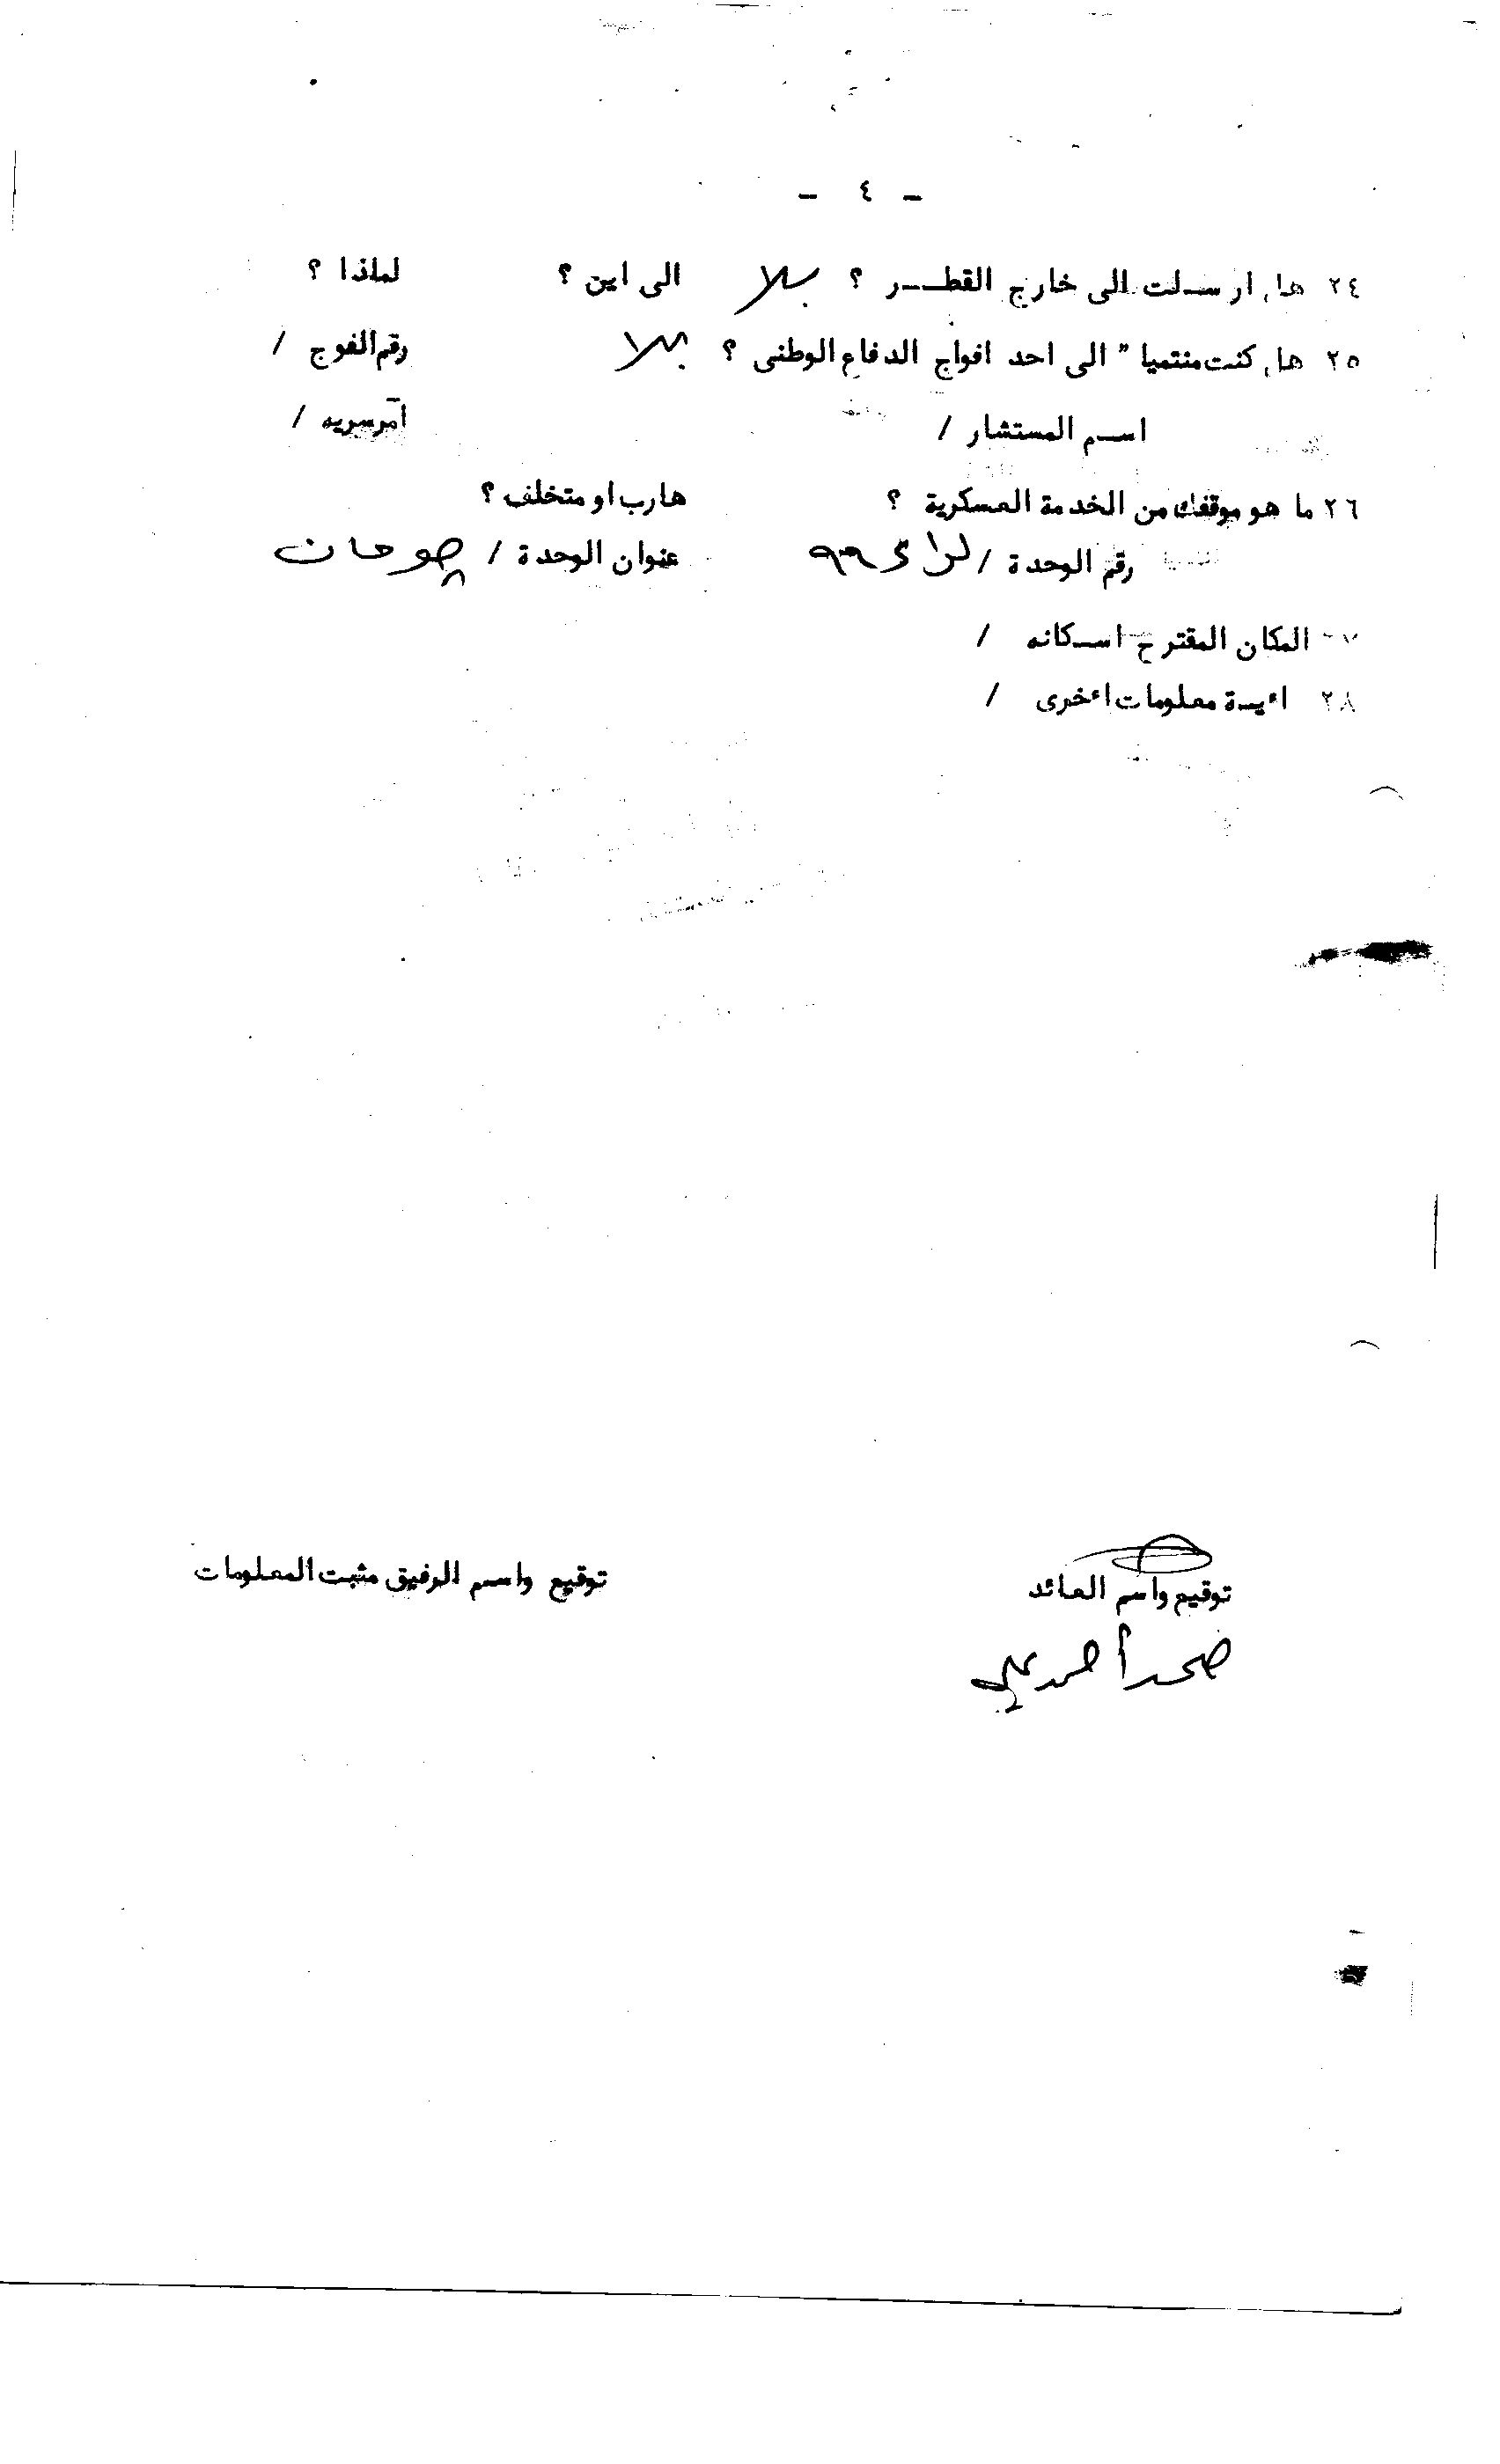 - ٤ -
٢٤ هل ارسلت الى خارج القطر ؟ بلا الى اين ؟ لماذا ؟
٢٥ هل كنت منتميا " الى احد افواج الدفاع الوطني ؟ بلا رقم الفوج /
اسم المستشار / آمر سريه /
٢٦ ما هو موقفك من الخدمة العسكرية ؟ هارب او متخلف ؟
رقم الوحدة / عنوان الوحدة / چومان
٢٧ المكان المقترح اسكانه /
٢٨ اية معلومات اخرى /
توقيع واسم العائد توقيع واسم الرفيق مثبت المعلومات
أحمد علي